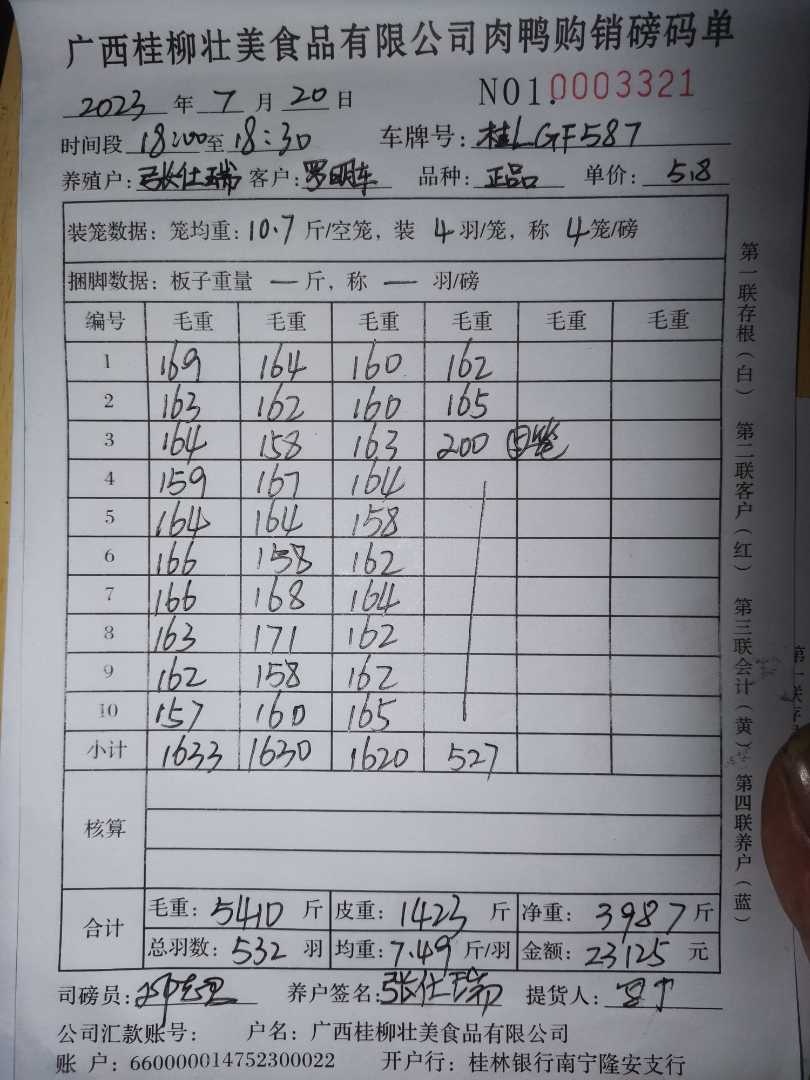 广西桂柳壮美食品有限公司肉鸭购销磅码单
2023 年 7 月 20 日 NO1.0003321
时间段 18:00 至 18:30 车牌号: 桂LGF587
养殖户: 张仕瑞 客户: 罗明车 品种: 正品 单价: 5.8
装笼数据: 笼均重: 10.7 斤/空笼, 装 4 羽/笼, 称 4 笼/磅
捆脚数据: 板子重量 — 斤, 称 — 羽/磅
编号 毛重 毛重 毛重 毛重 毛重 毛重
1 169 164 160 162
2 163 162 160 165
3 164 158 163 200 笼
4 159 167 164
5 164 164 158
6 166 158 162
7 166 168 164
8 163 171 162
9 162 158 162
10 157 160 165
小计 1633 1630 1620 527
核算
合计 毛重: 5410 斤 皮重: 1423 斤 净重: 3987 斤
总羽数: 532 羽 均重: 7.49 斤/羽 金额: 23125 元
司磅员: 养户签名: 张仕瑞 提货人:
公司汇款账号: 户名: 广西桂柳壮美食品有限公司
账 户: 660000014752300022 开户行: 桂林银行南宁隆安支行
第一联存根(白) 第二联客户(红) 第三联会计(黄) 第四联养户(蓝)